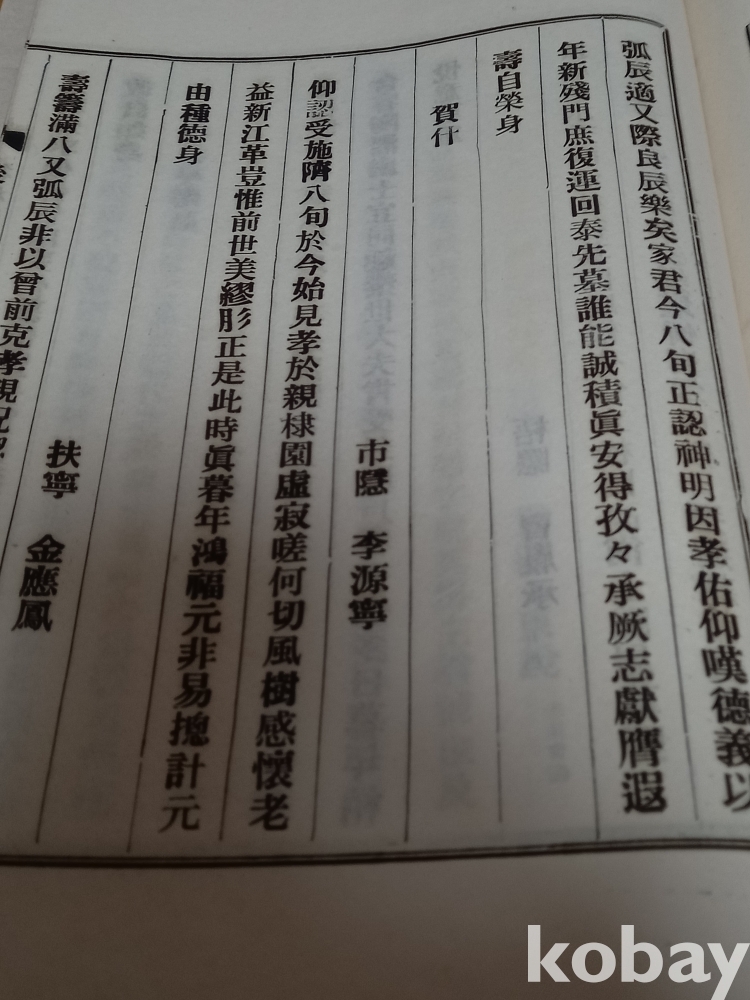 弧辰適又際良辰樂矣家君今八旬正認神明因孝佑仰嘆德義以
年新殘門庶復運回泰先墓誰能誠積眞安得孜々承厥志獻膺遐
壽自榮身
賀什
市隱 李源寧
仰認受施隮八旬於今始見孝於親棣園虛寂嗟何切風樹感懷老
益新江革豈惟前世美繆肜正是此時眞暮年鴻福元非易摠計元
由種德身
扶寧 金應鳳
壽籌滿八又弧辰非以曾前克孝親
kobay